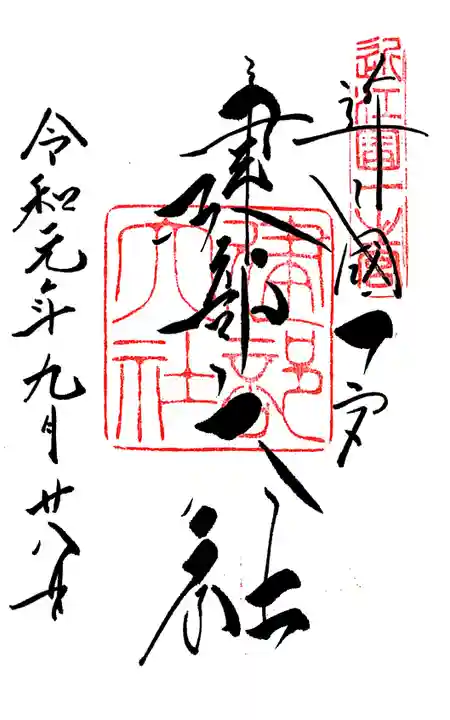 近江國一宮
近江國一之宮
建部大社
建部大社
令和元年九月廿八日